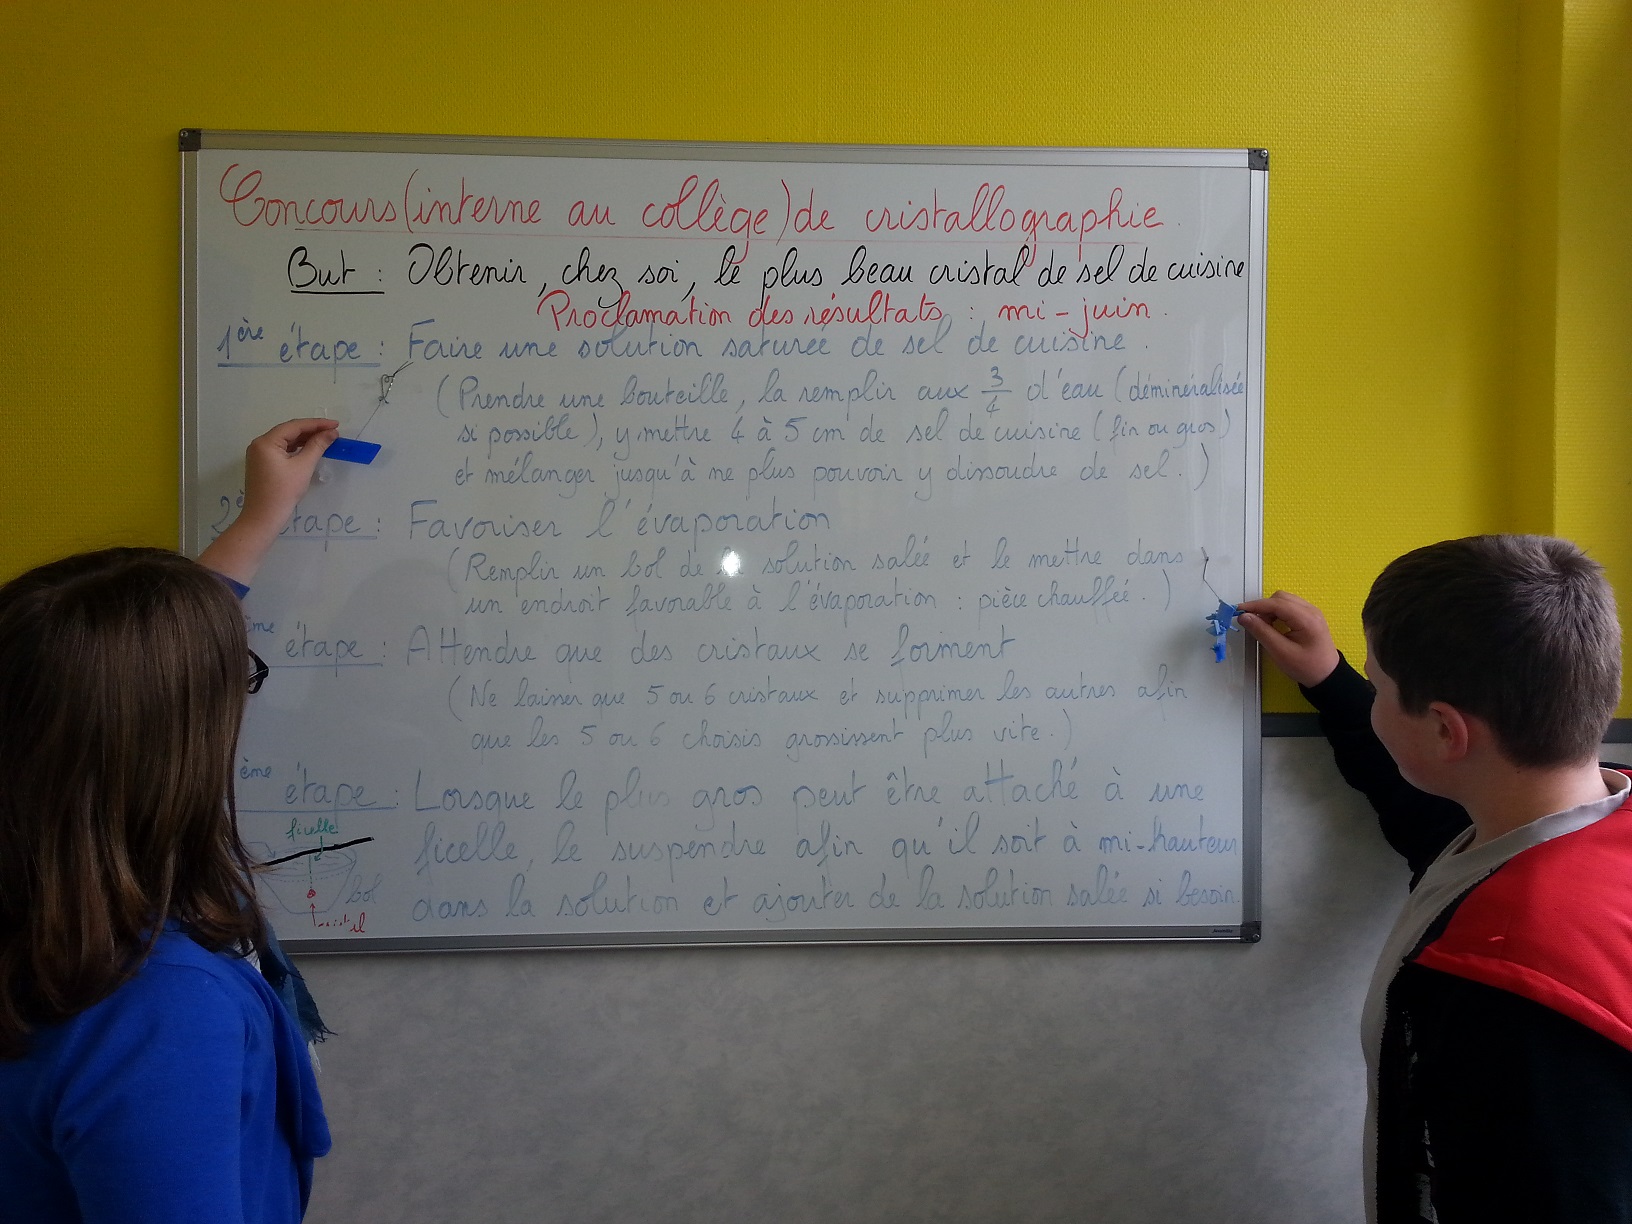 Concours (interne au collège) de cristallographie.
But : Obtenir, chez soi, le plus beau cristal de sel de cuisine
Proclamation des résultats : mi-juin.
1ère étape : Faire une solution saturée de sel de cuisine.
(Prendre une bouteille, la remplir aux 3/4 d'eau (déminéralisée
si possible), y mettre 4 à 5 cm de sel de cuisine (fin ou gros)
et mélanger jusqu'à ne plus pouvoir y dissoudre de sel.)
2è étape : Favoriser l'évaporation
(Remplir un bol de la solution salée et le mettre dans
un endroit favorable à l'évaporation : pièce chauffée.)
ème étape : Attendre que des cristaux se forment
(Ne laisser que 5 ou 6 cristaux et supprimer les autres afin
que les 5 ou 6 choisis grossissent plus vite.)
ème étape : Lorsque le plus gros peut être attaché à une
ficelle, le suspendre afin qu'il soit à mi-hauteur
dans la solution et ajouter de la solution salée si besoin.
ficelle
bol